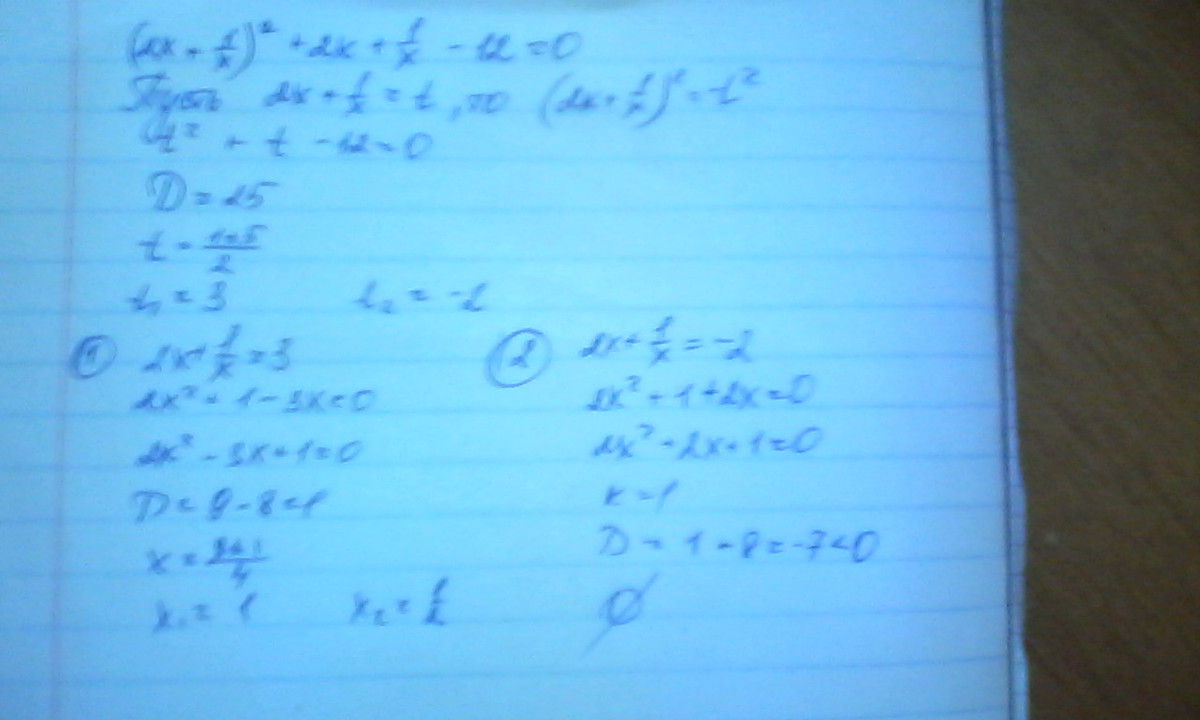 (2x + 1/x)² + 2x + 1/x - 12 = 0
Пусть 2x + 1/x = t, то (2x + 1/x)² = t²
t² + t - 12 = 0
D = 25
t₁ = 3
① 2x + 1/x = 3
2x² + 1 - 3x = 0
2x² - 3x + 1 = 0
D = 9 - 8 = 1
x₁ = 1 x₂ = 1/2
② 2x + 1/x = -2
2x² + 1 + 2x = 0
D = 1 - 8 = -7 < 0
∅